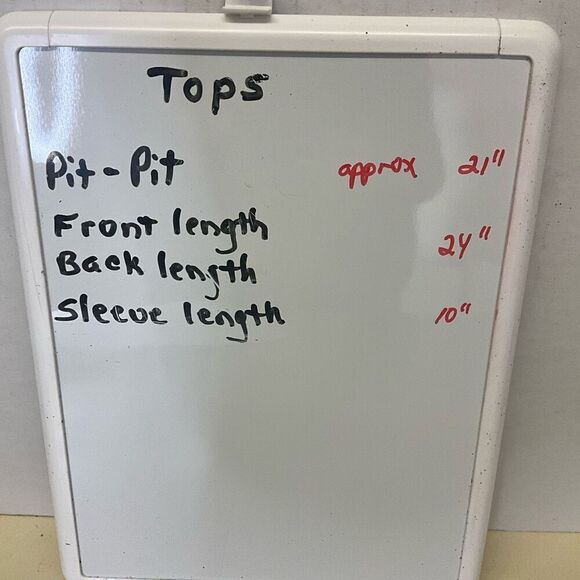 Tops
Pit - Pit approx 21"
Front length
24"
Back length
Sleeve length 10"